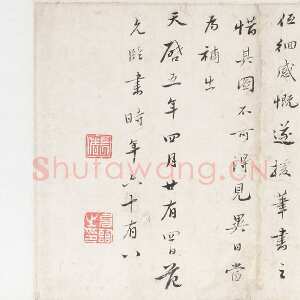 感慨遂援筆書之
惜其圖不可得見異日當
為補出
天啓五年四月廿有四日范
允臨書時年六十有八
Shufawang.CN